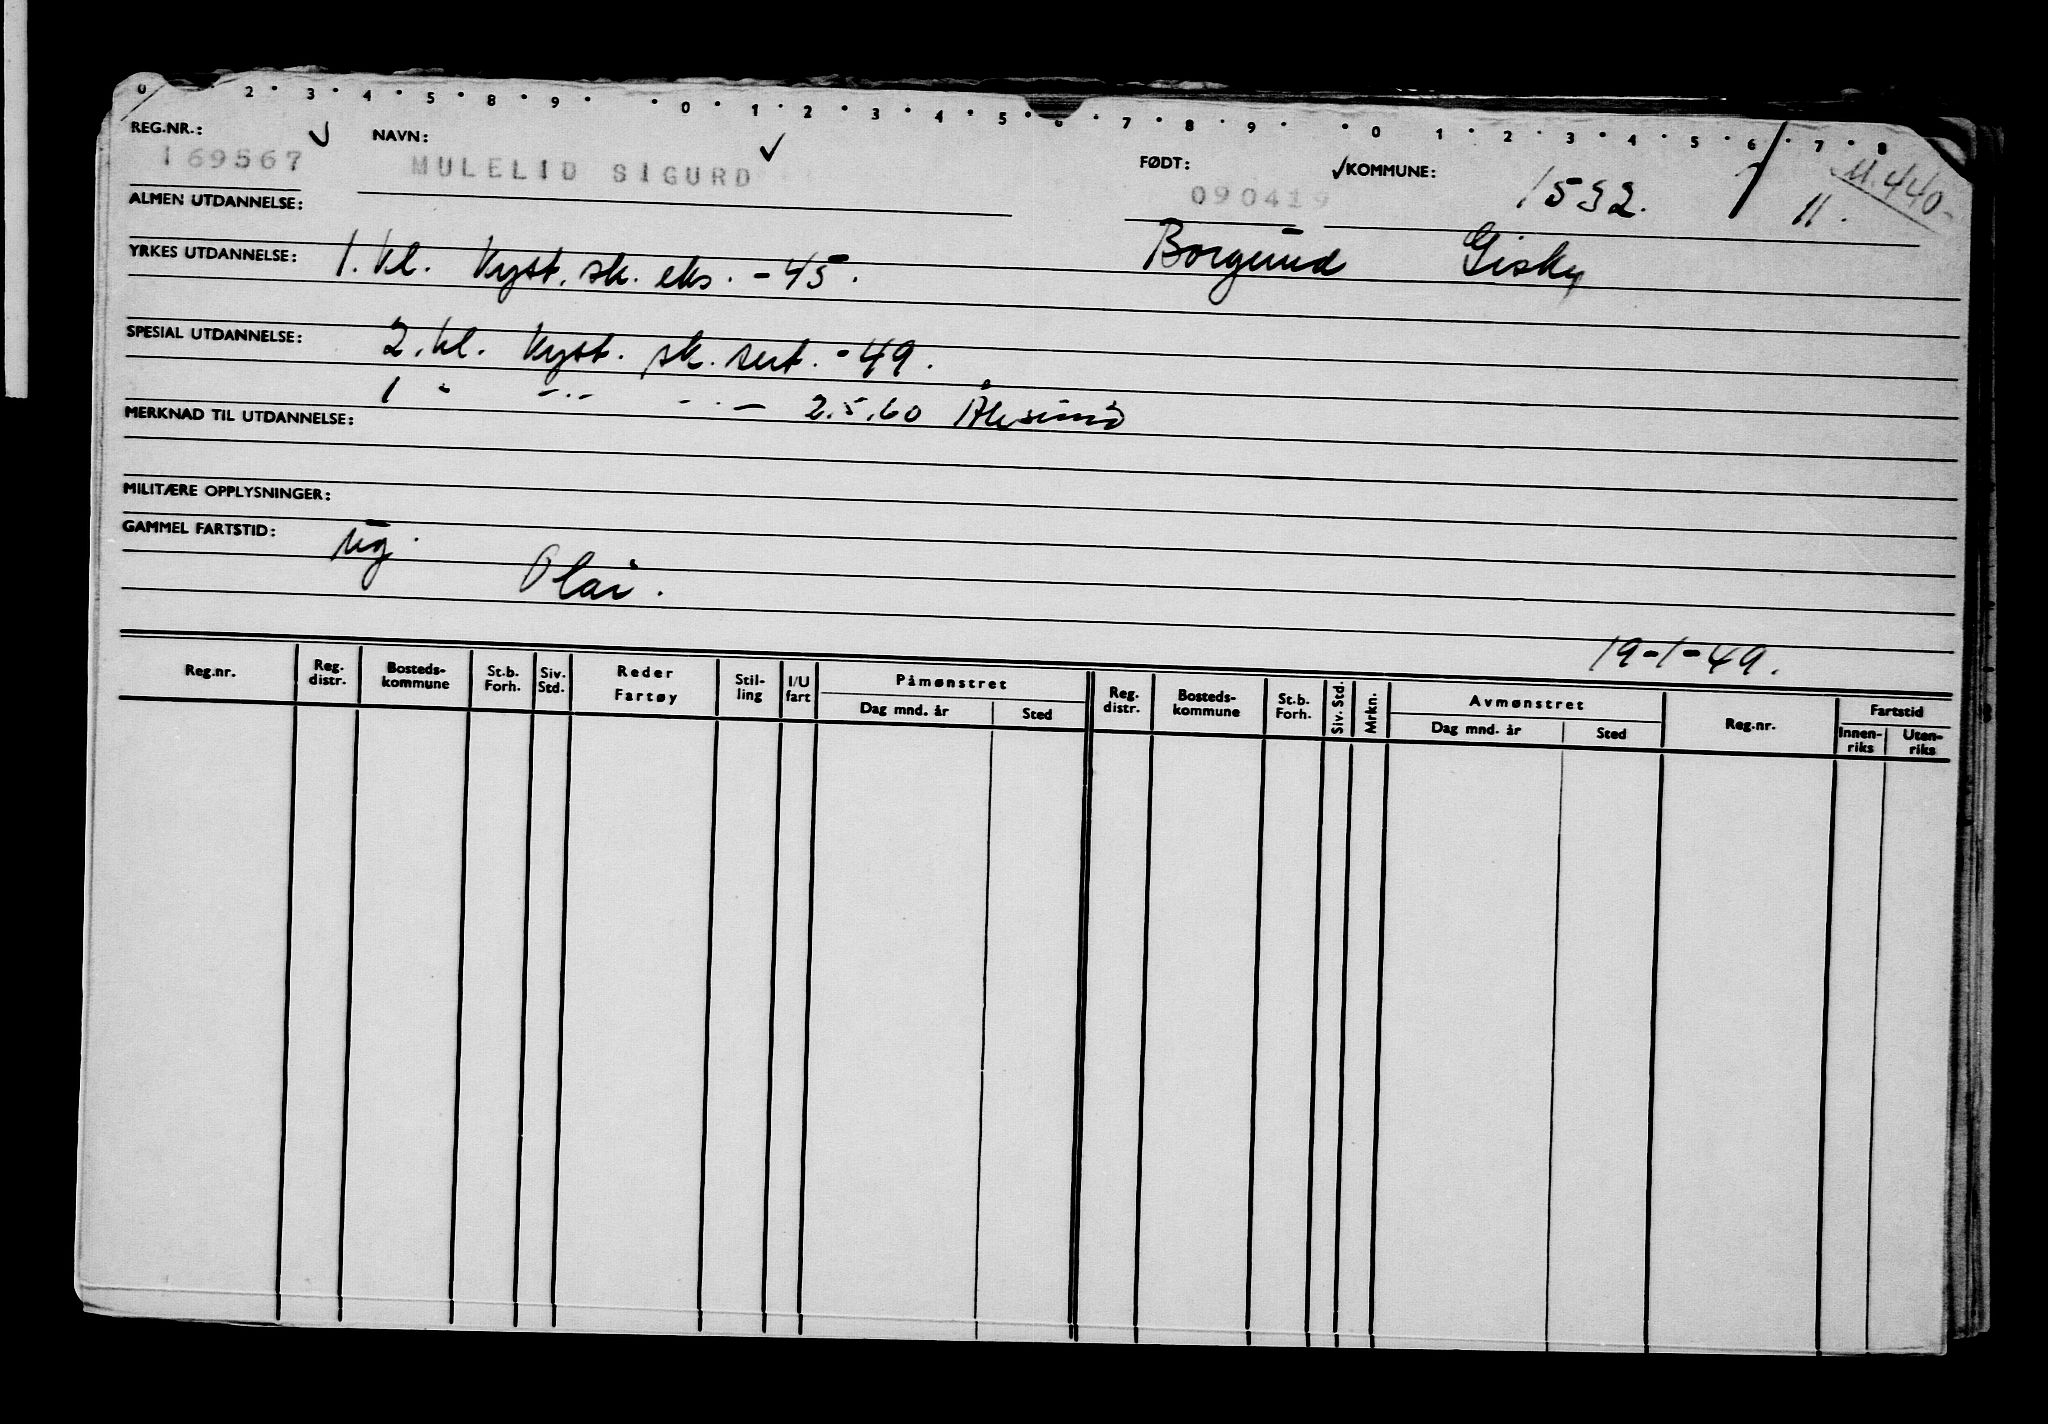 0 2 · 3 · 4 · 5 · 8 · 9 · · 0 · 1 · 2 · 3 · 4 · 5 · 6 · 7 · 8 · 9 · · 0 · 1 · 2 · 3 · 4 · 5 · 6 · 7 · 8
REG.NR.: ✓ NAVN: ✓ FØDT: ✓ KOMMUNE: 1532. 11. M.440-
169567 MULELID SIGURD 090419
ALMEN UTDANNELSE:
Borgund Giske
YRKES UTDANNELSE: 1. kl. kyst. sk. eks. - 45.
SPESIAL UTDANNELSE: 2. kl. kyst. sk. sert. - 49.
1 " -"- -"- 2.5.60 Ålesund
MERKNAD TIL UTDANNELSE:
MILITÆRE OPPLYSNINGER:
GAMMEL FARTSTID: ug.
Olai.
19-1-49.
Reg.nr. Reg. distr. Bosteds-kommune St.b. Forh. Siv. Std. Reder Fartøy Stil-ling I/U fart Påmønstret Dag mnd. år Sted Reg. distr. Bosteds-kommune St.b. Forh. Siv. Std. Mrkn. Avmønstret Dag mnd. år Sted Reg.nr. Fartstid Innen-riks Uten-riks